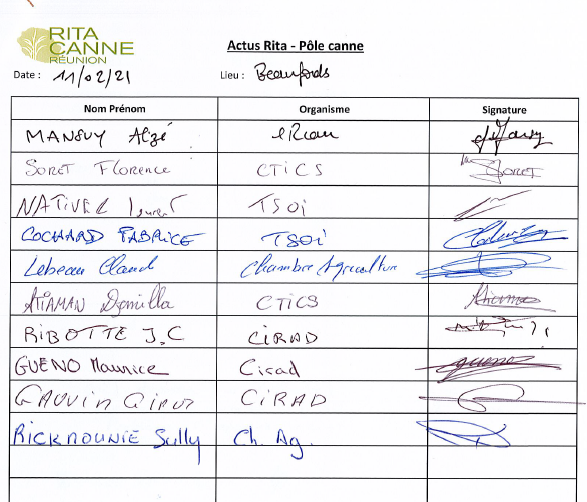 RITA
CANNE
RÉUNION
Actus Rita – Pôle canne
Date : 11/02/21 Lieu : Beaufonds
Nom Prénom Organisme Signature
MANSUY Alizé
SORET Florence CTICS SORET
NATIVEL Laurent TSOi
COCHARD FABRICE TSOi
Lebeau Claud Chambre Agriculture
ATIAMAN Danilla CTICS
RIBOTTE J.C CIRAD
GUENO Maurice Cirad gueno
GAUVIN CIRAD
RICKMOUNIE Sully Ch. Ag.